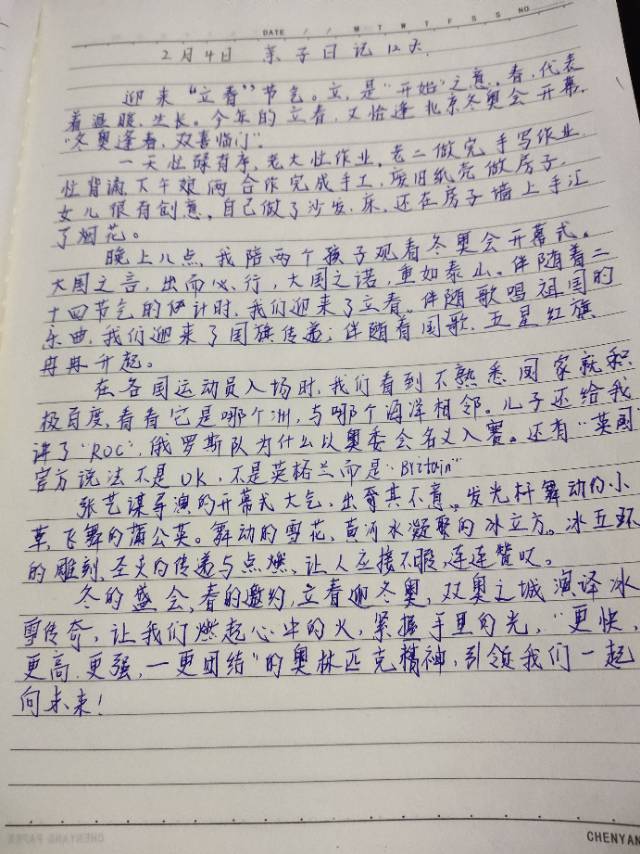 DATE / / M T W T F S S NO.
2月4日 亲子日记12天
迎来“立春”节气。立,是“开始”之意,春,代表
着温暖,生长。今年的立春,又恰逢北京冬奥会开幕,
“冬奥逢春,双喜临门”。
一天忙碌有序,老大忙作业,老二做完手写作业
忙背诵,下午娘两合作完成手工,废旧纸壳做房子,
女儿很有创意,自己做了沙发,床,还在房子墙上手工
了烟花。
晚上八点,我陪两个孩子观看冬奥会开幕式。
大国之言,出而必行,大国之诺,重如泰山。伴随着二
十四节气的倒计时,我们迎来了立春。伴随歌唱祖国的
乐曲,我们迎来了国旗传递;伴随着国歌,五星红旗
冉冉升起。
在各国运动员入场时,我们看到不熟悉国家就积
极百度,看看它是哪个洲,与哪个海洋相邻。儿子还给我
讲了“ROC”,俄罗斯队为什么以奥委会名义入赛。还有“英国
官方说法不是UK,不是英格兰而是“Britain”
张艺谋导演的开幕式大气,出奇其不意。发光杆舞动的小
草,飞舞的蒲公英。舞动的雪花,黄河水凝聚的冰立方。冰五环
的雕刻,圣火的传递与点燃,让人应接不暇,连连赞叹。
冬的盛会,春的邀约,立春迎冬奥,双奥之城演绎冰
雪传奇,让我们燃起心中的火,紧握手里的光,“更快,
更高,更强,—更团结”的奥林匹克精神,引领我们一起
向未来!
CHENYAN